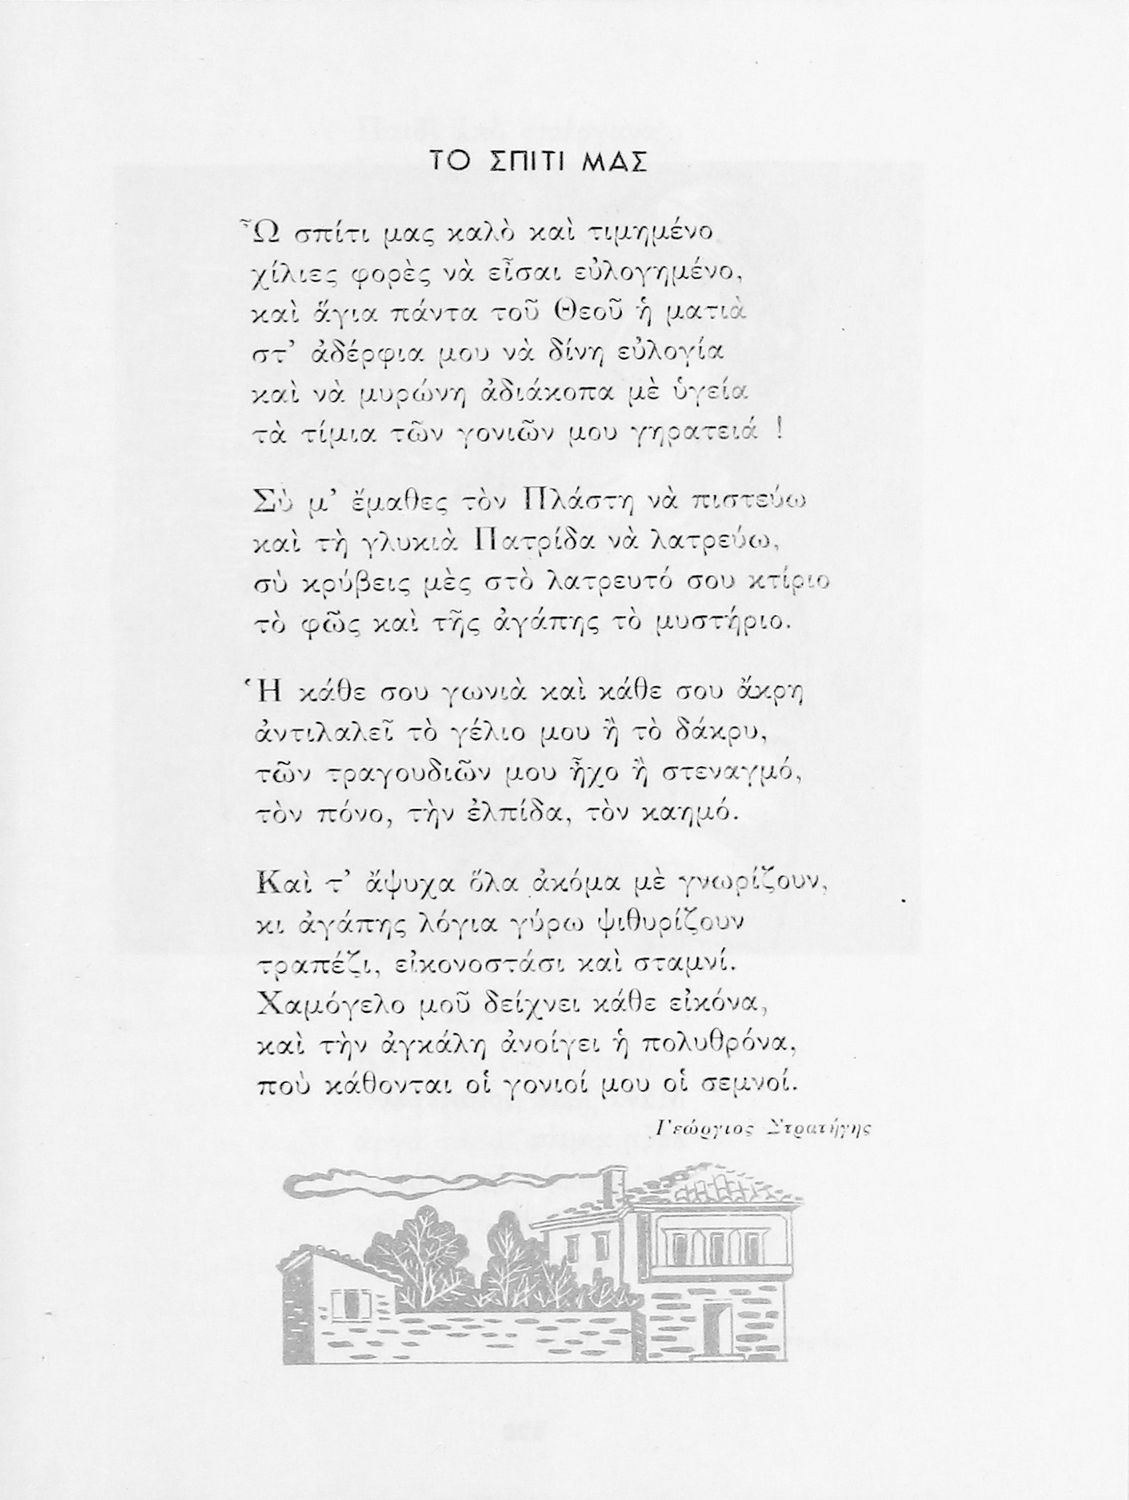 ΤΟ ΣΠΙΤΙ ΜΑΣ
Ὦ σπίτι μας καλὸ καὶ τιμημένο
χίλιες φορὲς νὰ εἶσαι εὐλογημένο,
καὶ ἅγια πάντα τοῦ Θεοῦ ἡ ματιὰ
στ' ἀδέρφια μου νὰ δίνη εὐλογία
καὶ νὰ μυρώνη ἀδιάκοπα μὲ ὑγεία
τὰ τίμια τῶν γονιῶν μου γηρατειά !
Σὺ μ' ἔμαθες τὸν Πλάστη νὰ πιστεύω
καὶ τὴ γλυκιὰ Πατρίδα νὰ λατρεύω,
σὺ κρύβεις μὲς στὸ λατρευτό σου κτίριο
τὸ φῶς καὶ τῆς ἀγάπης τὸ μυστήριο.
Ἡ κάθε σου γωνιὰ καὶ κάθε σου ἄκρη
ἀντιλαλεῖ τὸ γέλιο μου ἢ τὸ δάκρυ,
τῶν τραγουδιῶν μου ἦχο ἢ στεναγμό,
τὸν πόνο, τὴν ἐλπίδα, τὸν καημό.
Καὶ τ' ἄψυχα ὅλα ἀκόμα μὲ γνωρίζουν,
κι ἀγάπης λόγια γύρω ψιθυρίζουν
τραπέζι, εἰκονοστάσι καὶ σταμνί.
Χαμόγελο μοῦ δείχνει κάθε εἰκόνα,
καὶ τὴν ἀγκάλη ἀνοίγει ἡ πολυθρόνα,
ποὺ κάθονται οἱ γονιοί μου οἱ σεμνοί.
Γεώργιος Στρατήγης